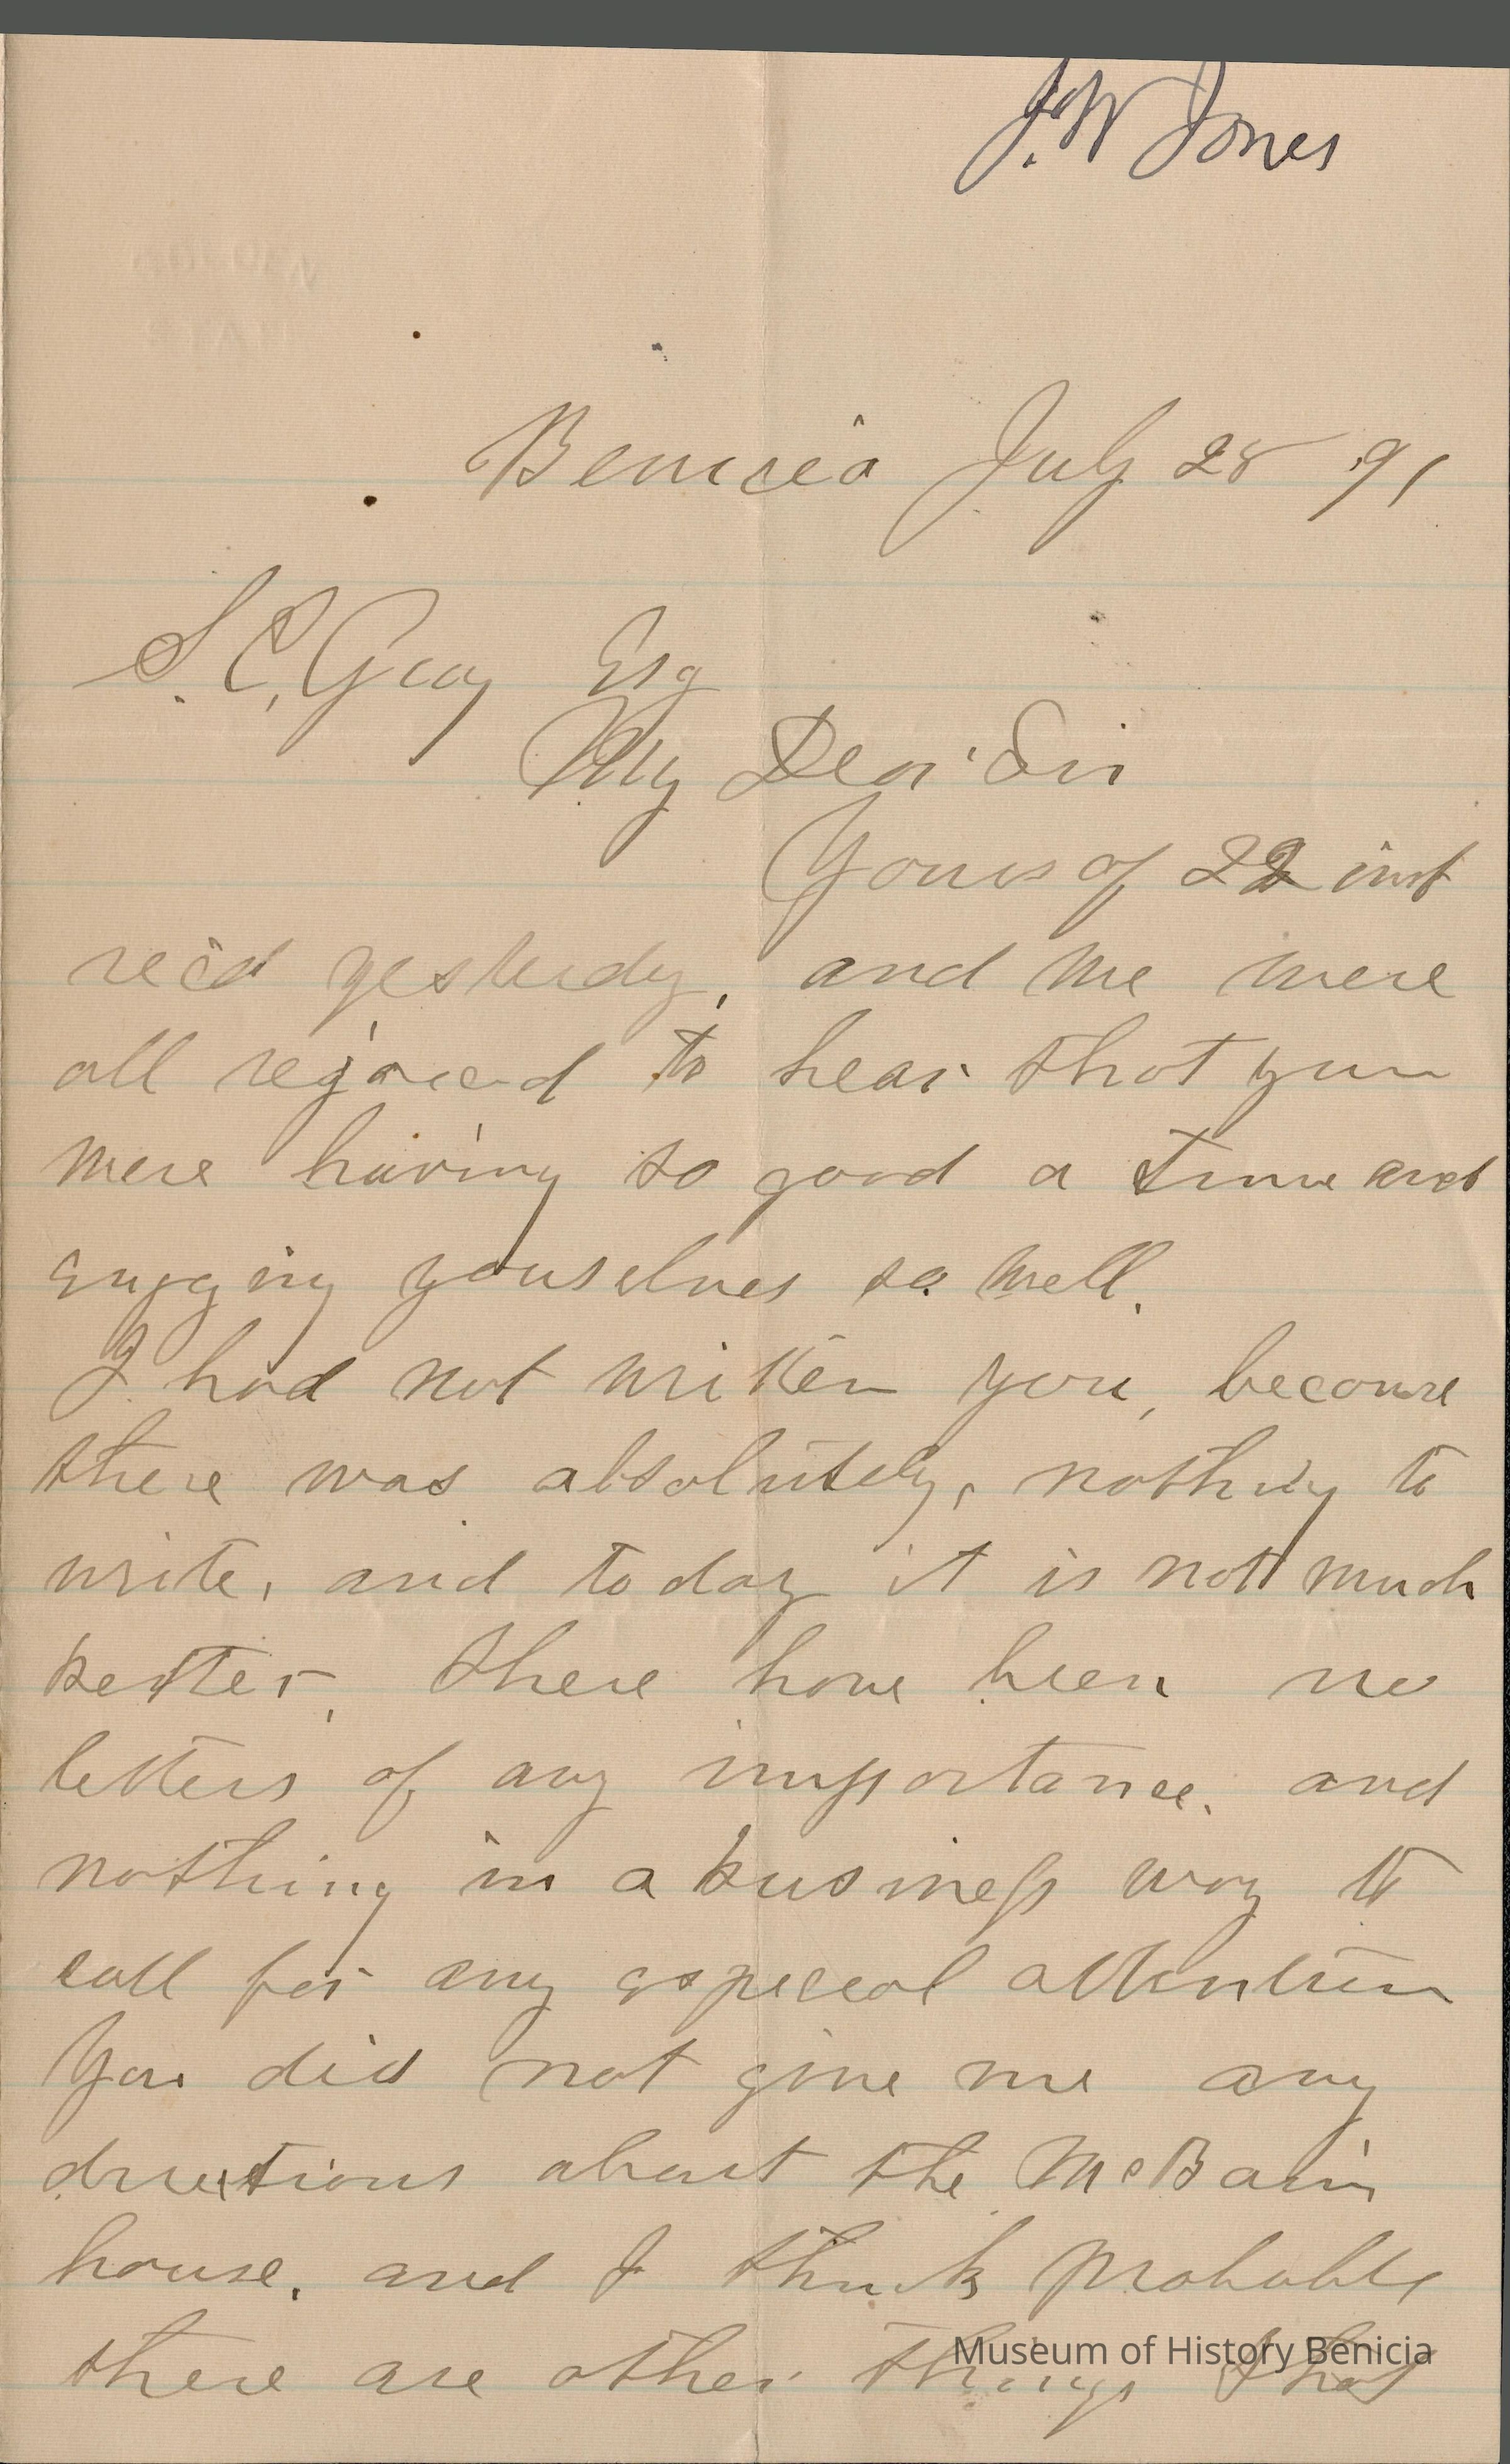 J. W Jones
Benicia July 28 91
S. C. Gray Esq
My Dear Sir
Yours of 22 inst
rec'd yesterday, and we were
all rejoiced to hear that you
were having so good a time and
enjoying yourselves so well.
I had not written you, because
there was absolutely, nothing to
write, and today it is not much
better, there have been no
letters of any importance. and
nothing in a business way to
call for any especial attention
You did not give me any
directions about the McBain
house, and I think probably
there are other things that
Museum of History Benicia